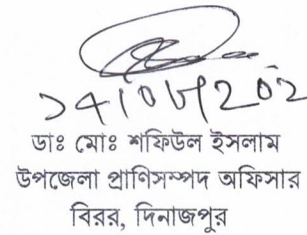 ডাঃ মোঃ শফিউল ইসলাম
উপজেলা প্রাণিসম্পদ অফিসার
বিরর, দিনাজপুর